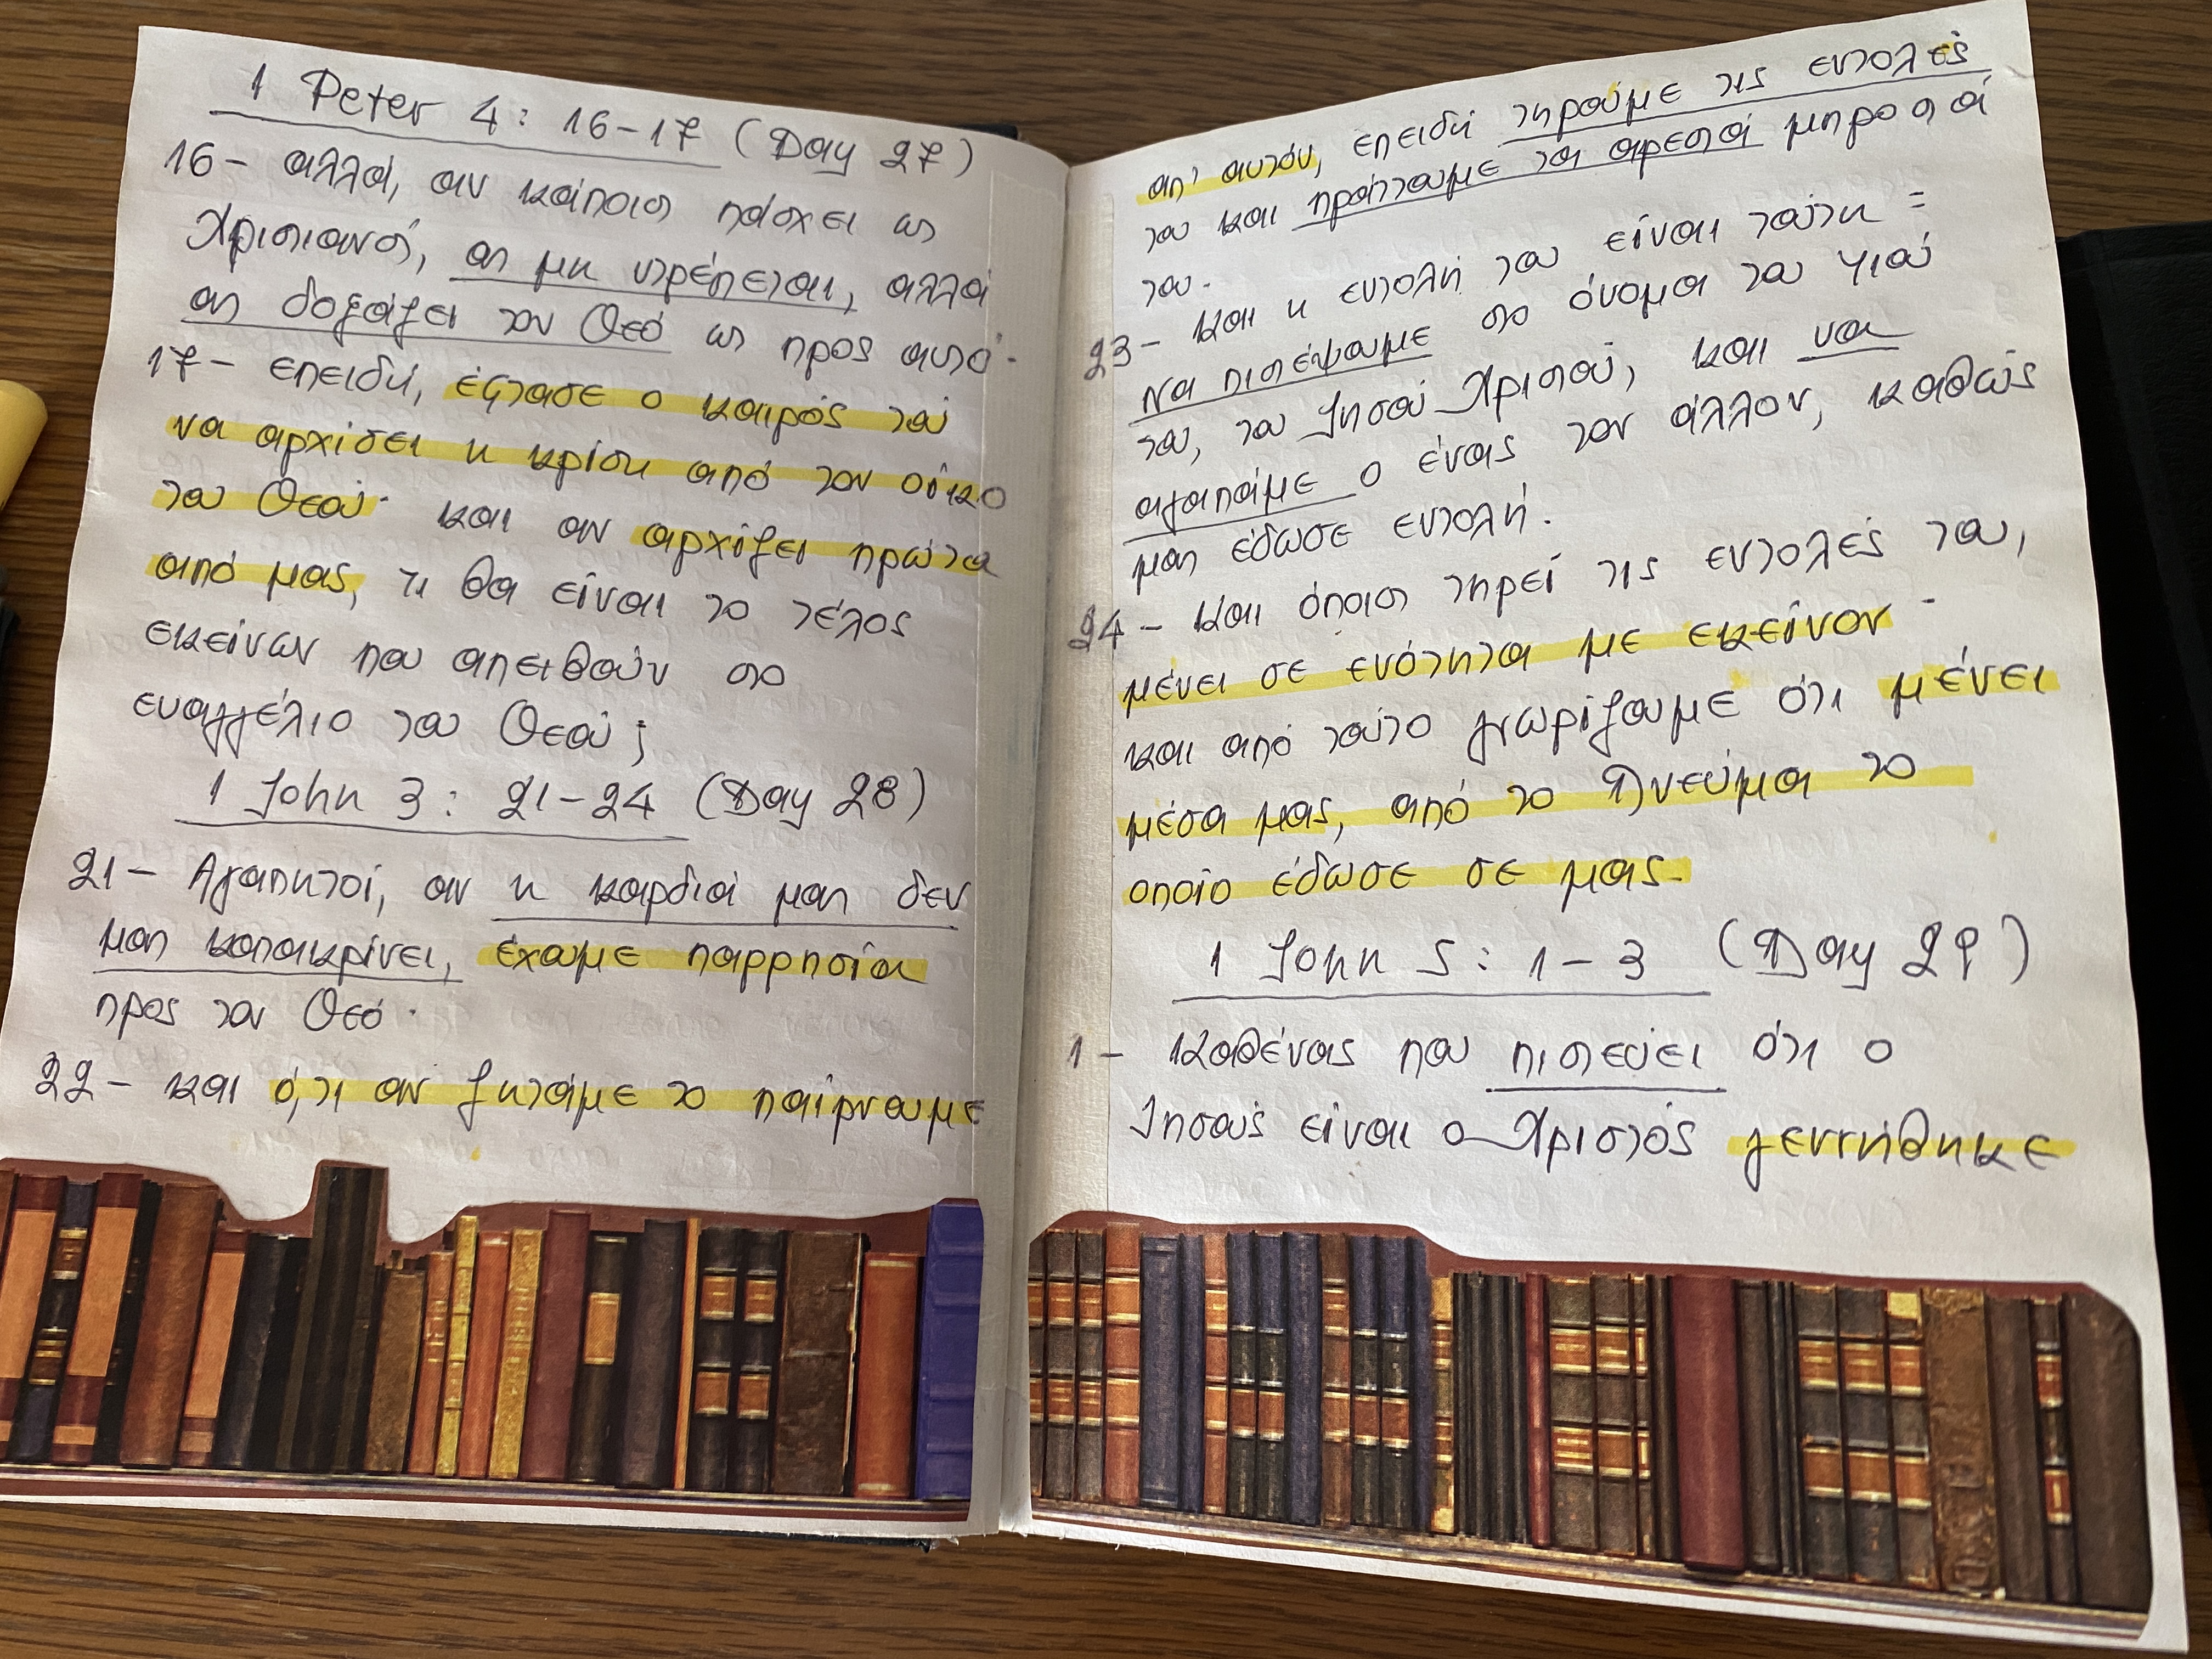 1 Peter 4: 16-17 (Day 27)
16- αλλά, αν κάποιος πάσχει ως
Χριστιανός, ας μη ντρέπεται, αλλά
ας δοξάζει τον Θεό ως προς αυτό·
17- επειδή, έφτασε ο καιρός τού
να αρχίσει η κρίση από τον οίκο
του Θεού· και αν αρχίζει πρώτα
από μας, τι θα είναι το τέλος
εκείνων που απειθούν στο
ευαγγέλιο του Θεού;
1 John 3: 21-24 (Day 28)
21- Αγαπητοί, αν η καρδιά μας δεν
μας κατακρίνει, έχουμε παρρησία
προς τον Θεό·
22- και ό,τι αν ζητάμε το παίρνουμε
απ' αυτόν, επειδή τηρούμε τις εντολές
του και πράττουμε τα αρεστά μπροστά
του.
23- και η εντολή του είναι τούτη:
Να πιστέψουμε στο όνομα του γιού
του, του Ιησού Χριστού, και να
αγαπάμε ο ένας τον άλλον, καθώς
μας έδωσε εντολή.
24- και όποιος τηρεί τις εντολές του,
μένει σε ενότητα με εκείνον·
και από τούτο γνωρίζουμε ότι μένει
μέσα μας, από το Πνεύμα το
οποίο έδωσε σε μας.
1 John 5: 1-3 (Day 29)
1- Καθένας που πιστεύει ότι ο
Ιησούς είναι ο Χριστός γεννήθηκε